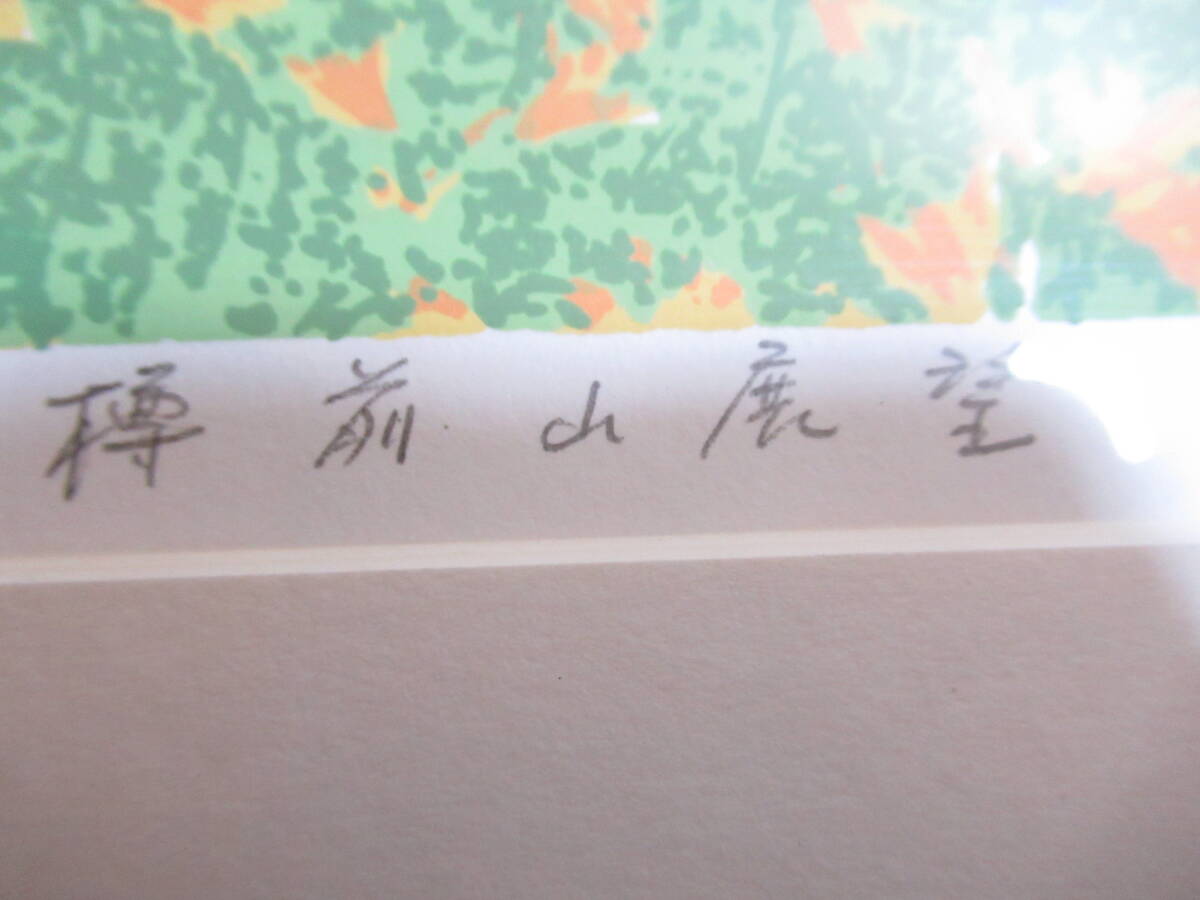 樽前山展望